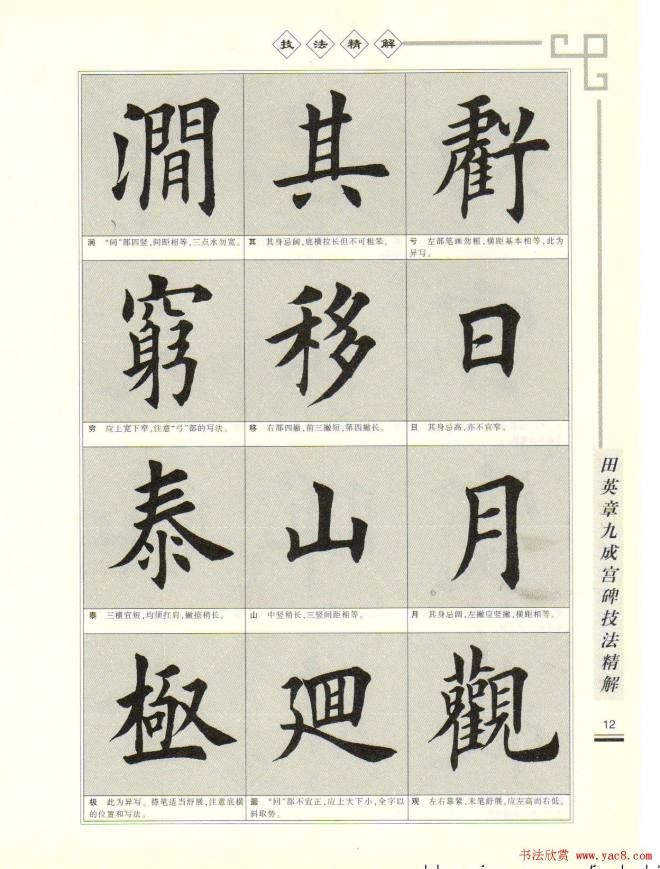 技法精解
澗 其 虧
涧 "间"部四竖,间距相等,三点水勿宽。
其 其身忌阔,底横拉长但不可粗笨。
亏 左部笔画勿粗,横距基本相等,此为
异写。
窮 移 日
穷 应上宽下窄,注意"弓"部的写法。
移 右部四撇,前三撇短,第四撇长。
日 其身忌高,亦不宜窄。
泰 山 月
泰 三横宜短,均须扛肩,撇捺稍长。
山 中竖稍长,三竖间距相等。
月 其身忌阔,左撇应竖撇,横距相等。
極 廻 觀
极 此为异写。捺笔适当舒展,注意底横
的位置和写法。
"回"部不宜正,应上大下小,全字以
斜取势。
观 左右靠紧,末笔舒展,应左高而右低。
田英章九成宫碑技法精解
12
书法欣赏 www.yac8.com